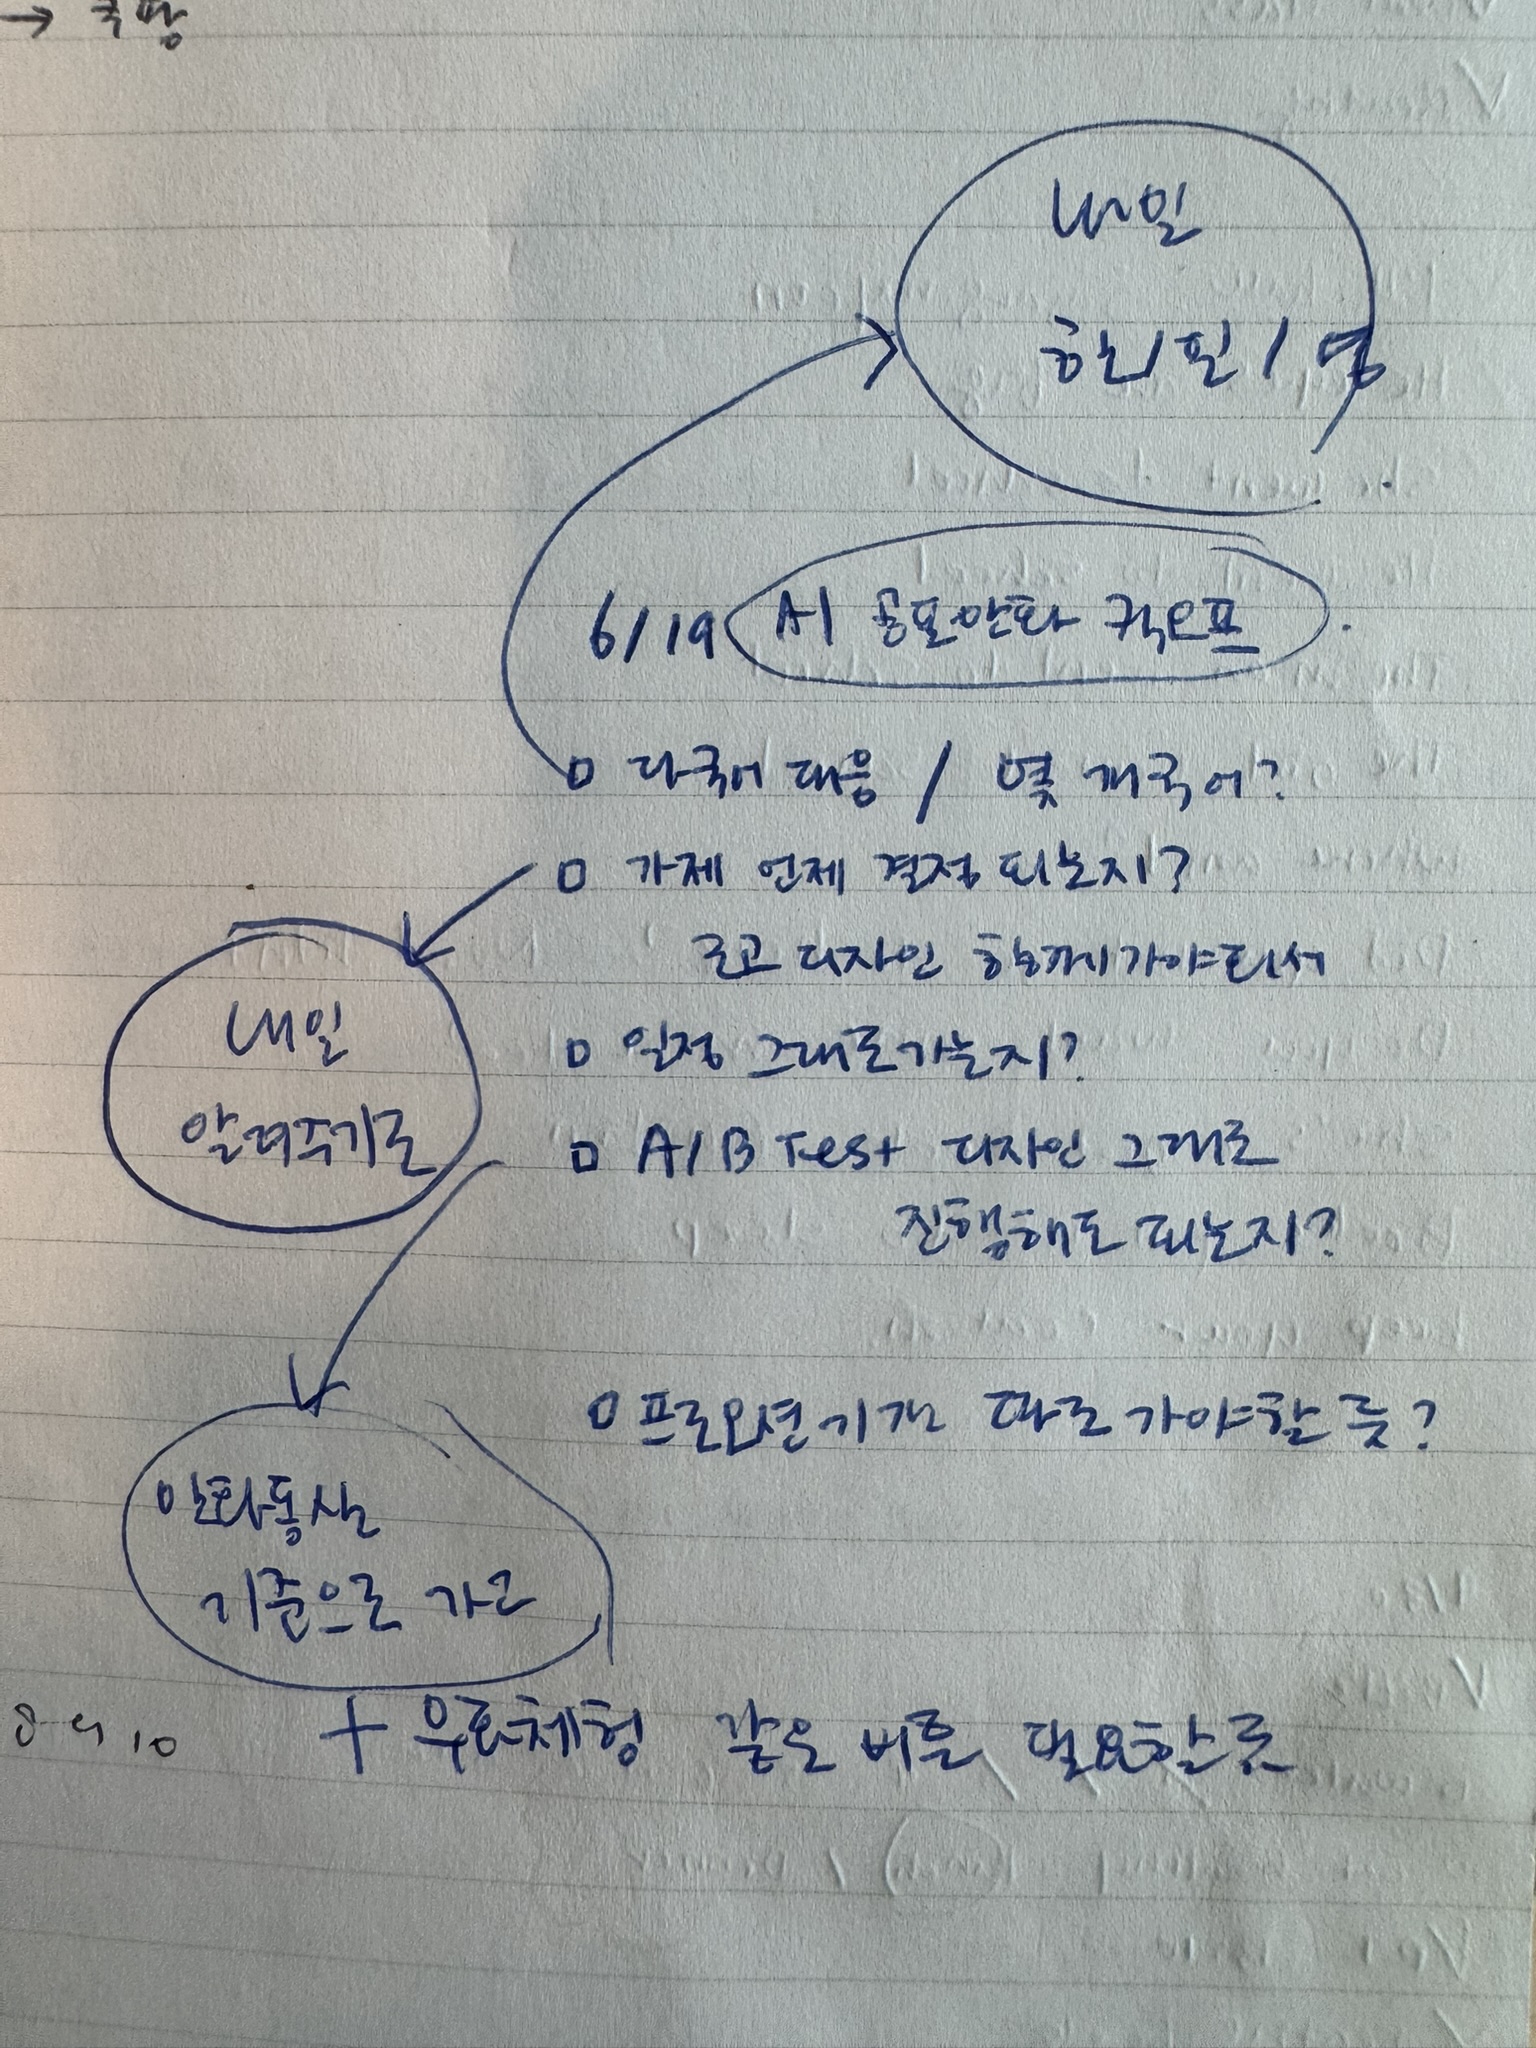 → 쿠팡
내일
6/19 AI 공포만화 킥오프
□ 다국어 대응 / 몇 개국어?
□ 가제 언제 결정 되는지?
로고 디자인 함께가야되서
□ 일정 그대로가는지?
□ A/B Test 디자인 그대로
진행해도 되는지?
내일
알려주기로
□ 프로모션기간 따로 가야할 듯?
만화동산
기준으로 가고
8 9 10
+ 무료체험 같은 버튼 필요할 듯